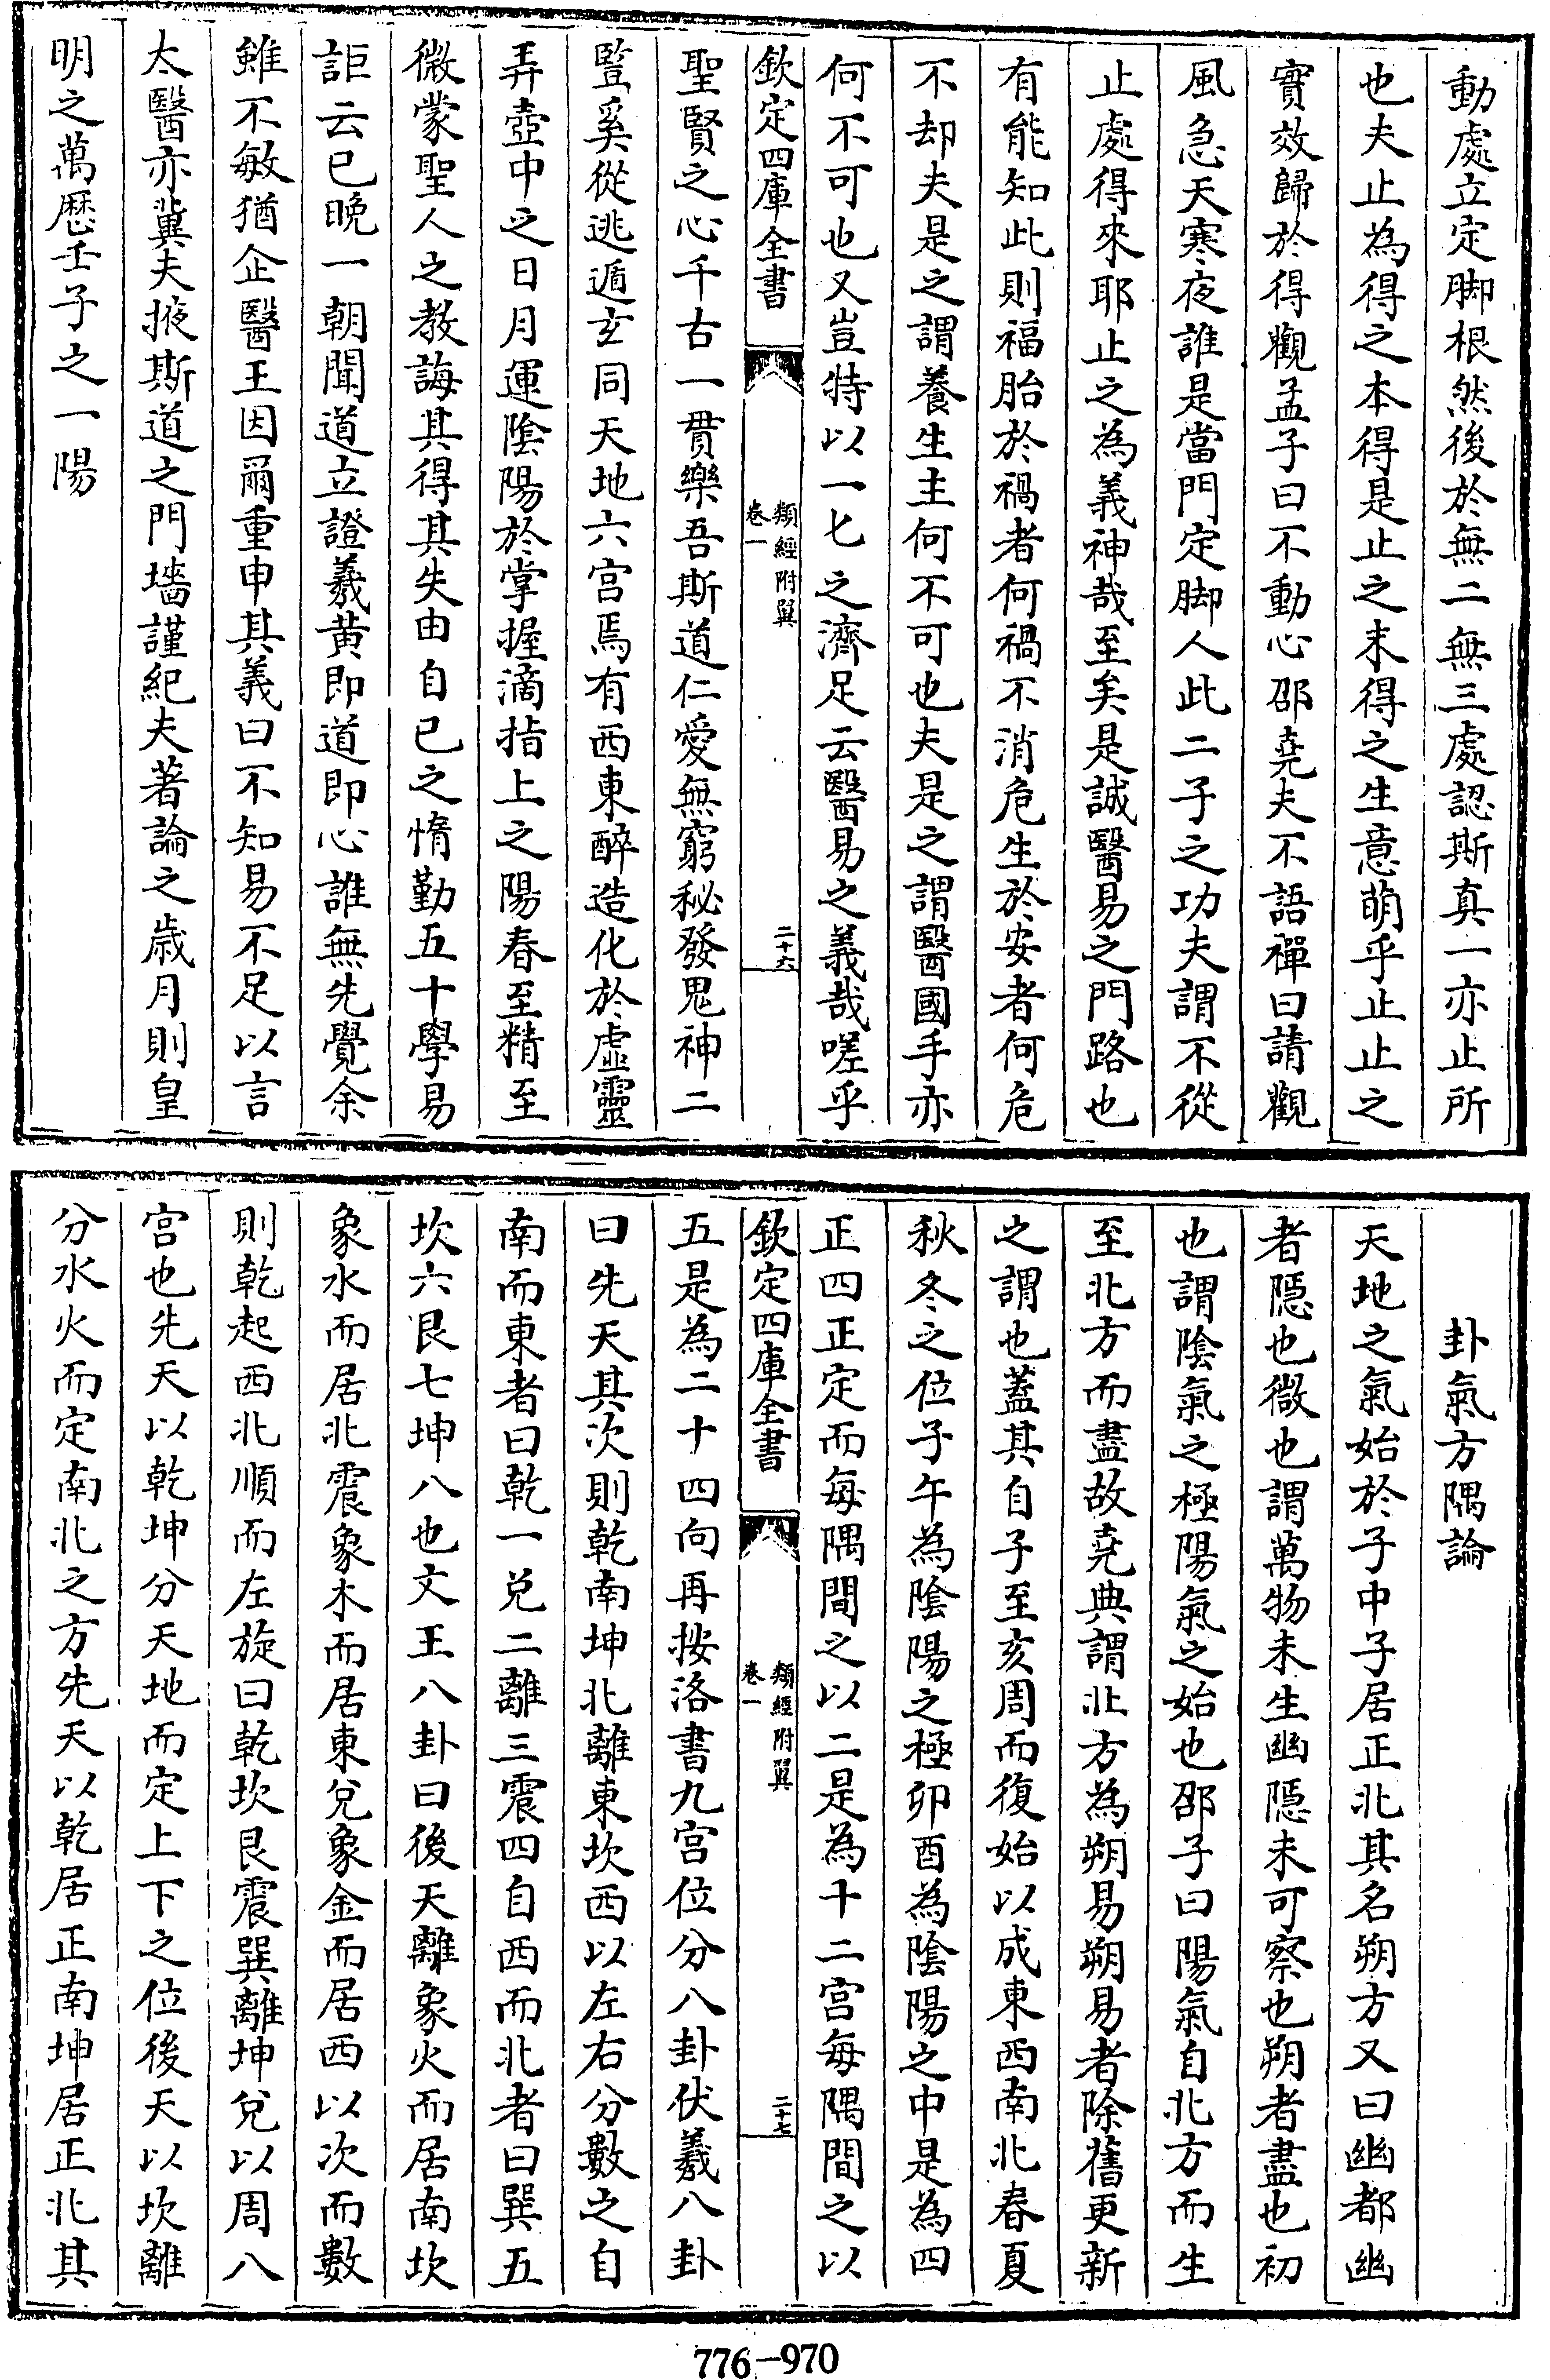 動處立定脚根然後於無二無三處認斯真一亦止所
也夫止為得之本得是止之末得之生意萌乎止止之
實效歸於得觀孟子曰不動心邵堯夫不語禪曰請觀
風急天寒夜誰是當門定脚人此二子之功夫謂不從
止處得來耶止之為義神哉至矣是誠醫易之門路也
有能知此則福胎於禍者何禍不消危生於安者何危
不却夫是之謂養生主何不可也夫是之謂醫國手亦
何不可也又豈特以一七之濟足云醫易之義哉嗟乎
欽定四庫全書
類經附翼
卷一
二十六
聖賢之心千古一貫樂吾斯道仁愛無窮秘發鬼神二
豎奚從逃遁玄同天地六宫焉有西東醉造化於虛靈
弄壺中之日月運陰陽於掌握滴指上之陽春至精至
微蒙聖人之教誨其得其失由自己之惰勤五十學易
詎云已晚一朝聞道立證羲黄即道即心誰無先覺余
雖不敏猶企醫王因爾重申其義曰不知易不足以言
太醫亦冀夫掖斯道之門墻謹紀夫著論之歳月則皇
明之萬歴壬子之一陽
卦氣方隅論
天地之氣始於子中子居正北其名朔方又曰幽都幽
者隠也微也謂萬物未生幽隠未可察也朔者盡也初
也謂陰氣之極陽氣之始也邵子曰陽氣自北方而生
至北方而盡故堯典謂北方為朔易朔易者除舊更新
之謂也蓋其自子至亥周而復始以成東西南北春夏
秋冬之位子午為陰陽之極卯酉為陰陽之中是為四
正四正定而每隅間之以二是為十二宫每隅間之以
欽定四庫全書
類經附翼
卷一
二十七
五是為二十四向再按洛書九宫位分八卦伏羲八卦
曰先天其次則乾南坤北離東坎西以左右分數之自
南而東者曰乾一兌二離三震四自西而北者曰巽五
坎六艮七坤八也文王八卦曰後天離象火而居南坎
象水而居北震象木而居東兌象金而居西以次而數
則乾起西北順而左旋曰乾坎艮震巽離坤兌以周八
宫也先天以乾坤分天地而定上下之位後天以坎離
分水火而定南北之方先天以乾居正南坤居正北其
776-970